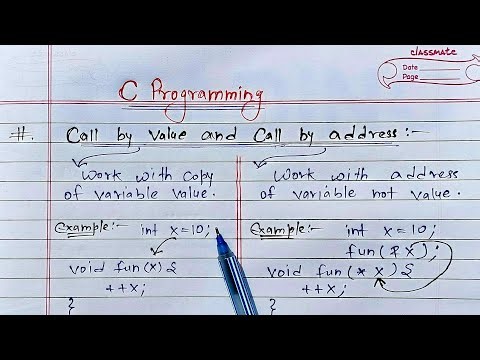 classmate
Date
Page
C Programming
#. Call by value and Call by address:-
Work with copy
of variable value.
Example:- int x=10;
void fun(x){
++x;
}
Work with address
of variable not value.
Example:- int x=10;
fun(&x);
void fun(* x){
++x;
}